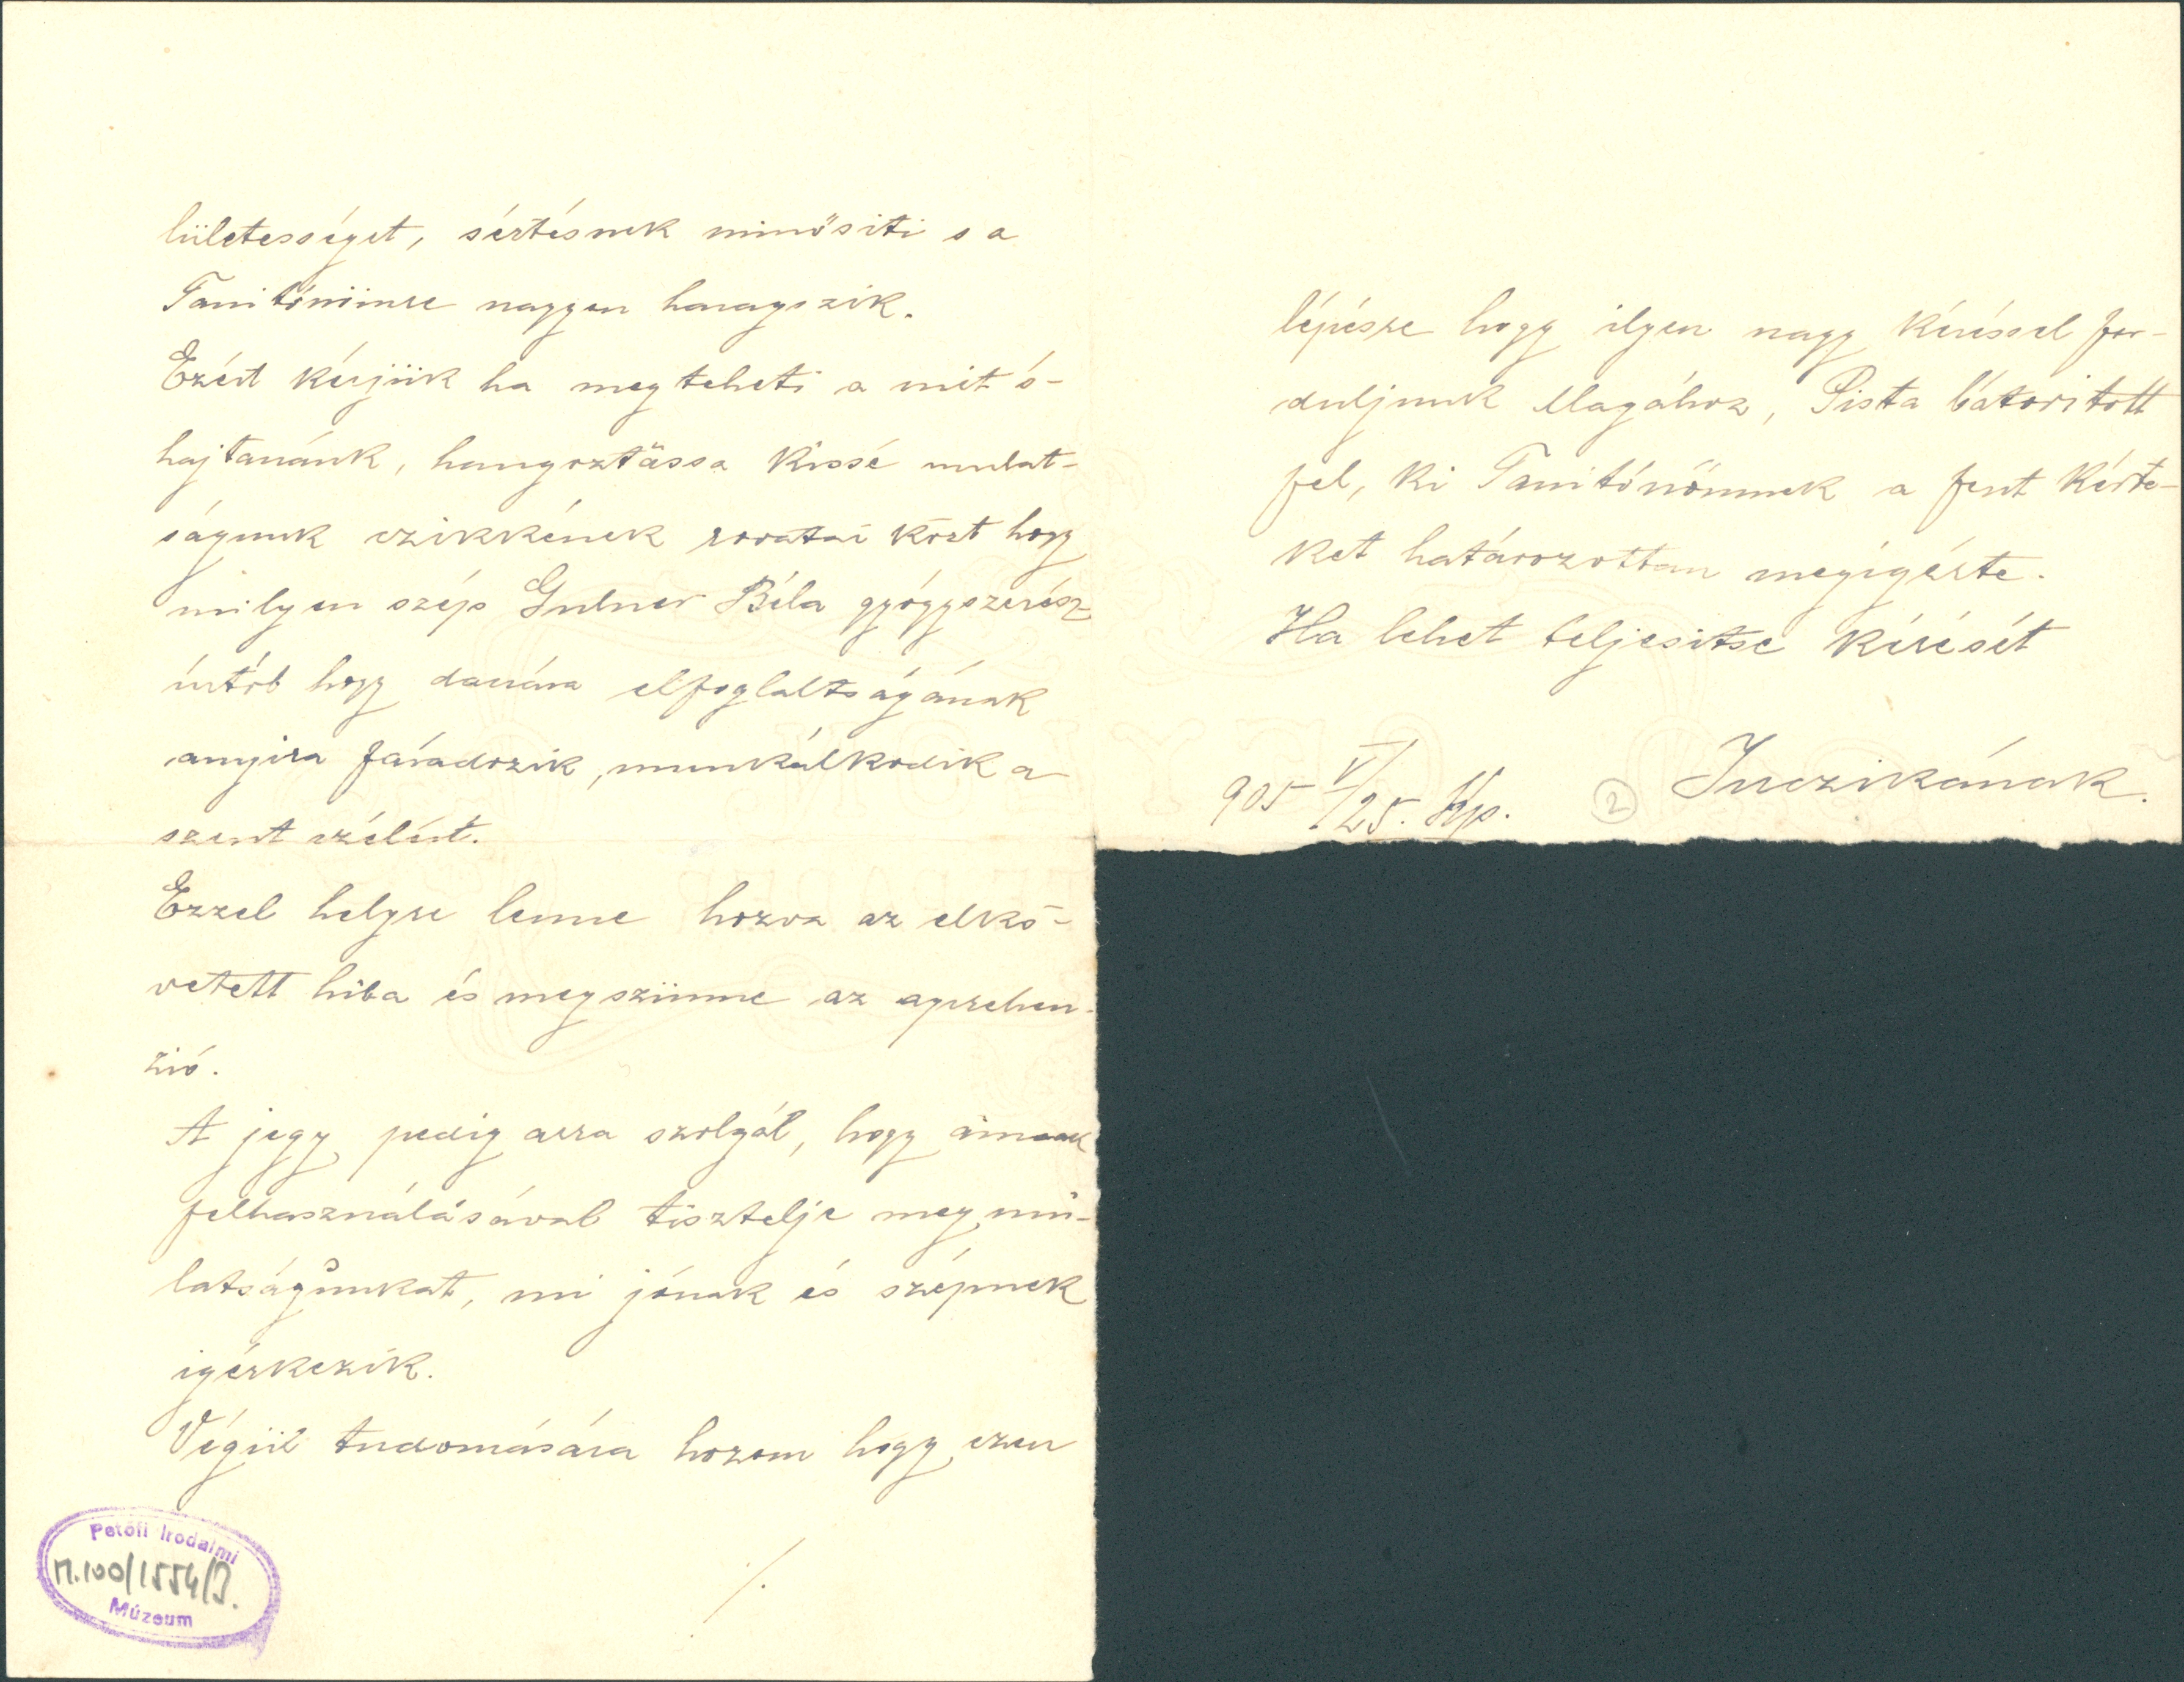 lületességet, sértésnek minősiti s a
Tanitónőnre nagyon haragszik.
Ezért kérjük ha megteheti a mit ó-
hajtanánk, hangoztassa kissé mulat-
ságunk czikkének rovatai közt hogy
milyen szép Gulner Béla gyógyszerész
úrtól hogy daczára elfoglaltságának
anyira fáradozik, munkálkodik a
szent czélért.
Ezzel helyre lenne hozva az elkö-
vetett hiba és megszünne az aprehen-
zió.
A jegy pedig arra szolgál, hogy annak
felhasználásával tisztelje meg mu-
latságunkat, mi jónak és szépnek
igérkezik.
Végül tudomására hozom hogy ezen
/.
Petőfi Irodalmi
M.100/1554/3.
Múzeum
lépésre hogy ilyen nagy kéréssel for-
duljunk Magához, Pista bátoritott
fel, ki Tanitónőmnek a fent kérte-
ket határozottan megigérte.
Ha lehet teljesitse kérését
Juczikának.
905 V/25. Kp.
2